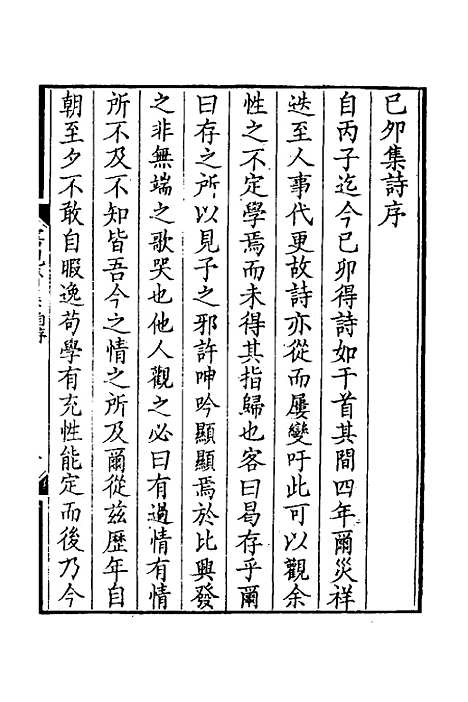 己卯集詩序
自丙子迄今己卯得詩如干首其間四年爾災祥
迭至人事代更故詩亦從而屢變吁此可以觀余
性之不定學焉而未得其指歸也客曰曷存乎爾
曰存之所以見子之邪許呻吟顯顯焉於比興發
之非無端之歌哭也他人觀之必曰有過情有情
所不及不知皆吾今之情之所及爾從茲歷年自
朝至夕不敢自暇逸苟學有充性能定而後乃今